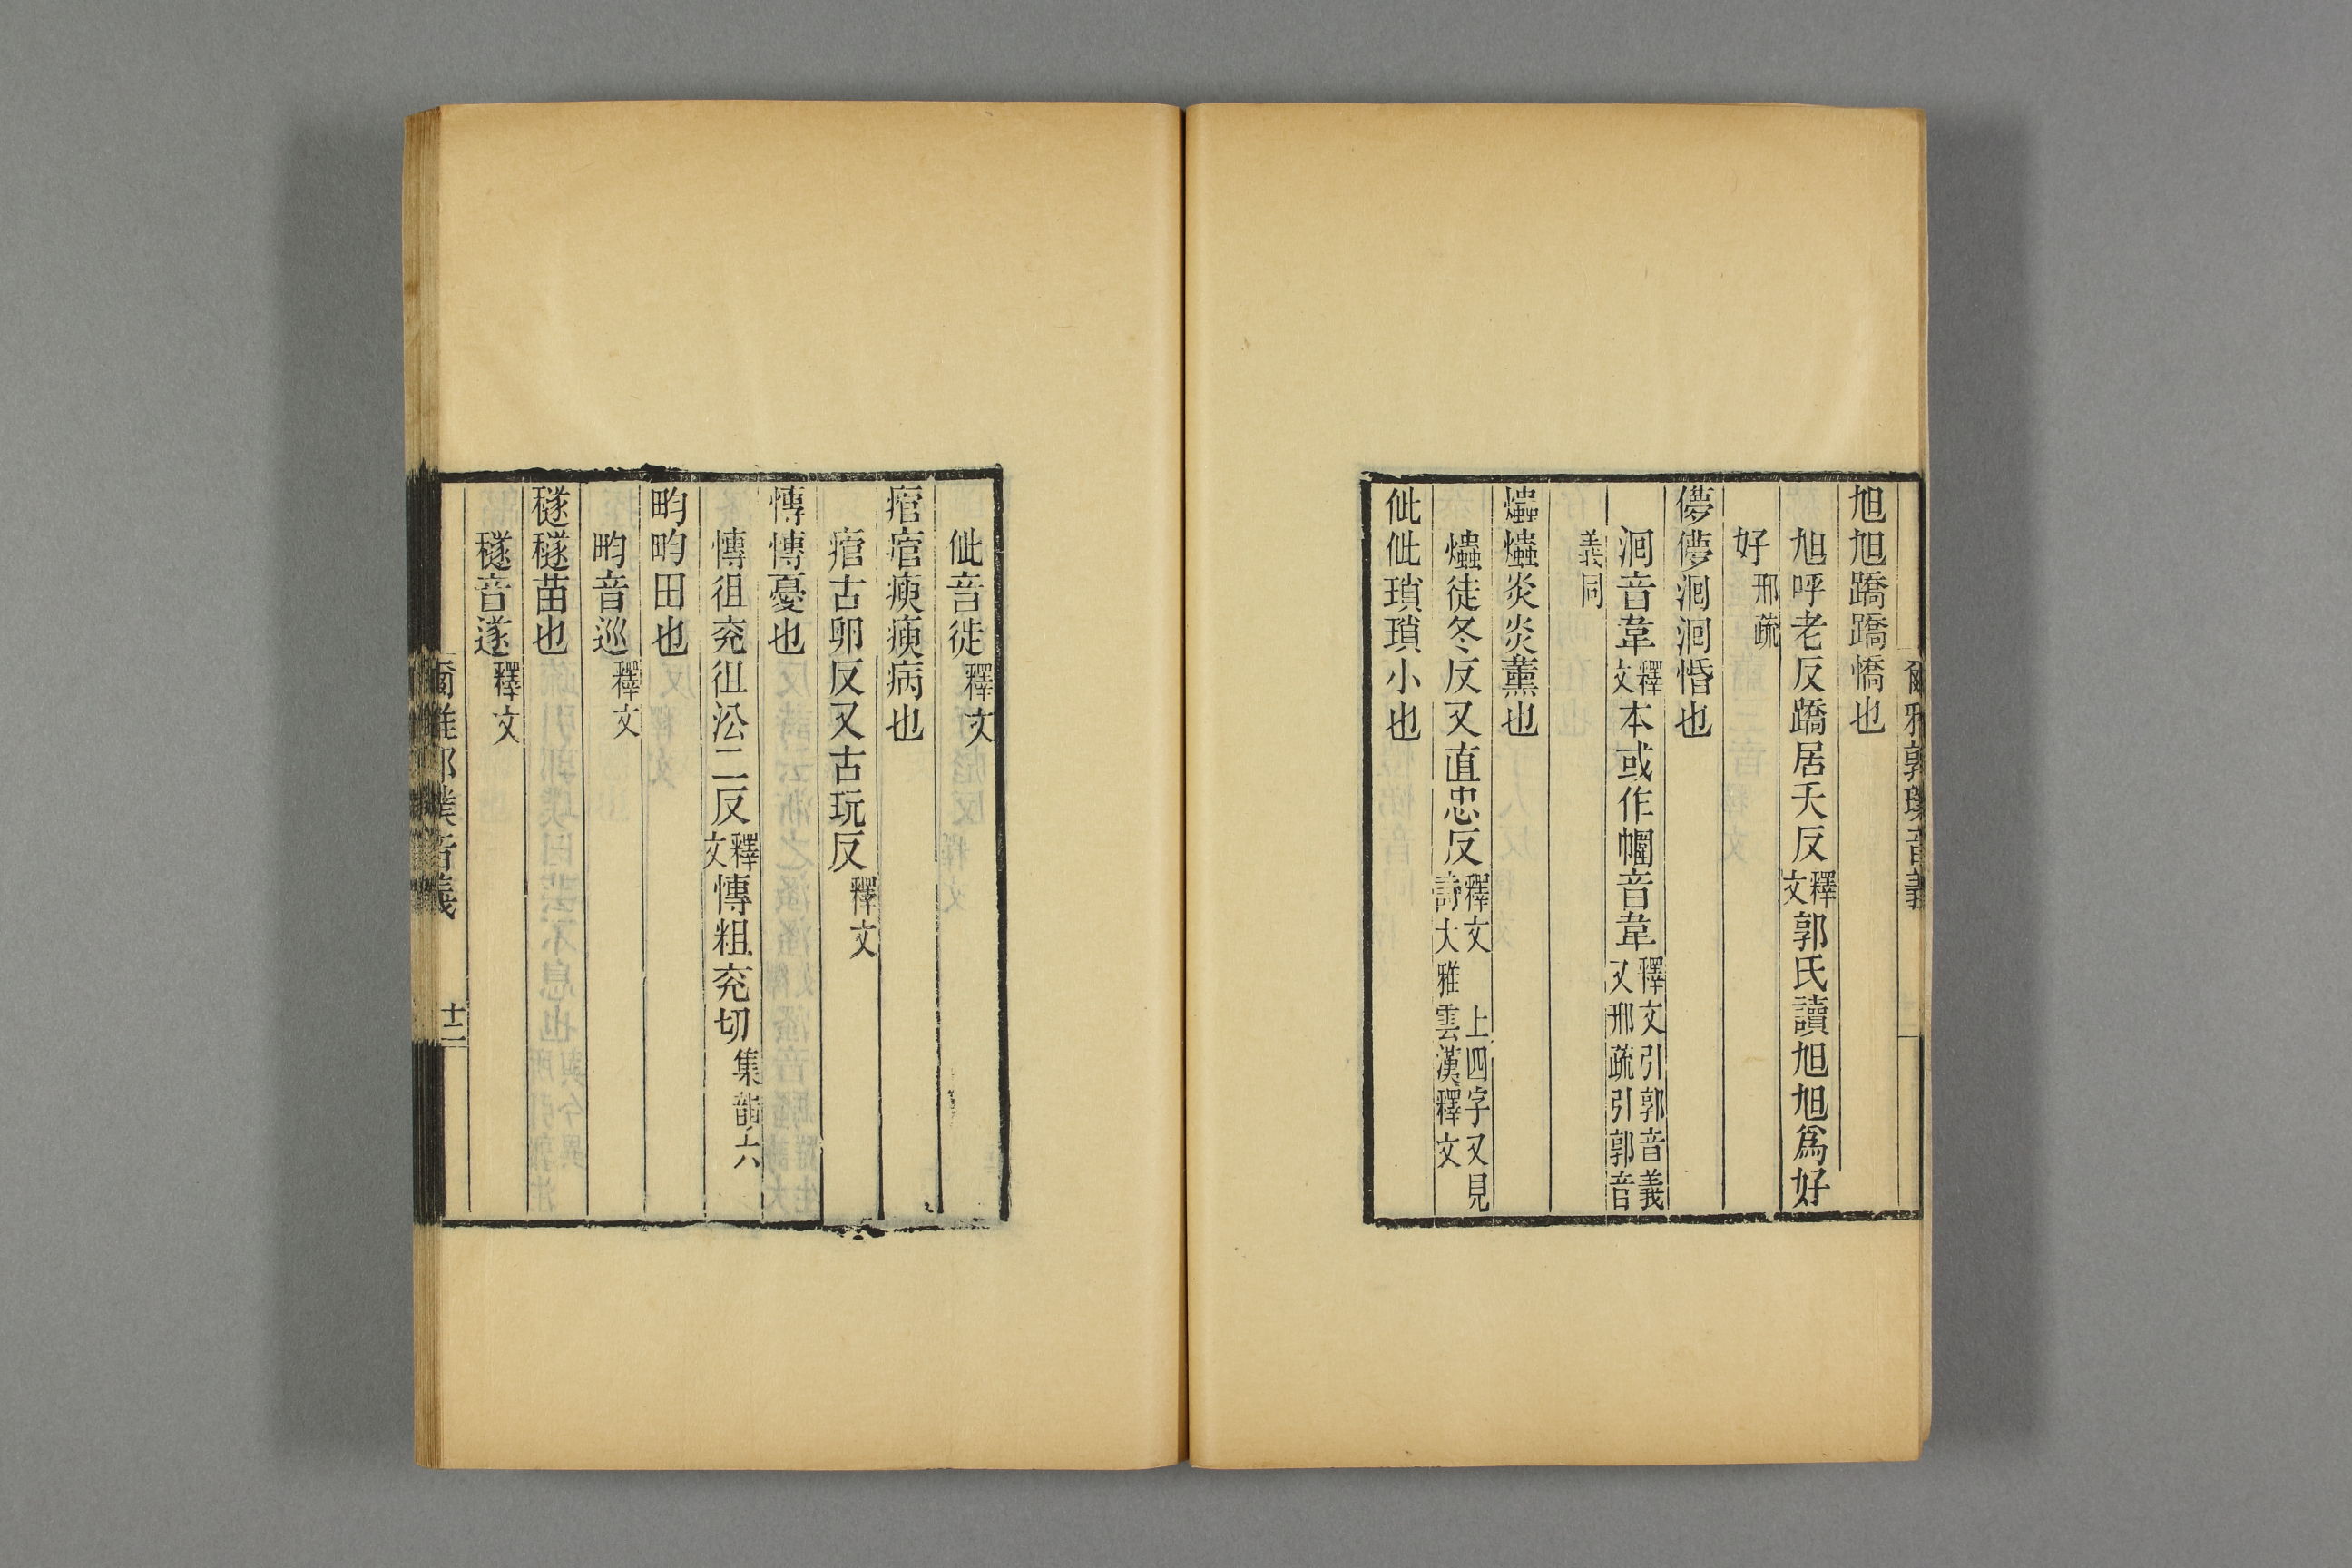 爾雅郭璞音義
旭旭蹻蹻憍也
旭呼老反蹻居夭反釋文郭氏讀旭旭爲好
好邢疏
儚儚洄洄惛也
洄音韋釋文本或作㡢音韋釋文引郭音義又邢疏引郭音
義同
爞爞炎炎薰也
爞徒冬反又直忠反釋文 上四字又見詩大雅雲漢釋文
佌佌瑣瑣小也
佌音徙釋文
痯痯瘐瘐病也
痯古卵反又古玩反釋文
慱慱憂也
慱徂兖徂沇二反釋文慱粗兖切集韻六
畇畇田也
畇音巡釋文
穟穟苗也
穟音遂釋文
爾雅郭璞音義 十二